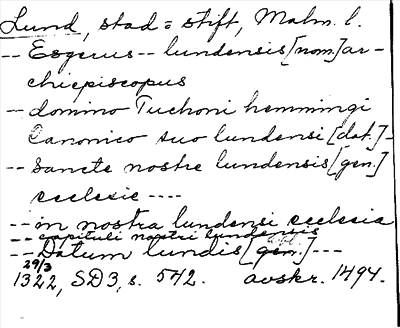 Lund, stad = stift, Malm. l.
-- Esgerus -- lundensis [nom.] ar-
chiepiscopus
-- domino Tuchoni hemmingi
Canonico suo lundensi [dat.] -
-- Sancte nostre lundensis [gen.]
ecclesie ----
-- in nostra lundensi ecclesia
-- capituli nostri lundensis
-- Datum lundis [gen.] ---
29/3
1322, SD3, s. 542. avskr. 1494.